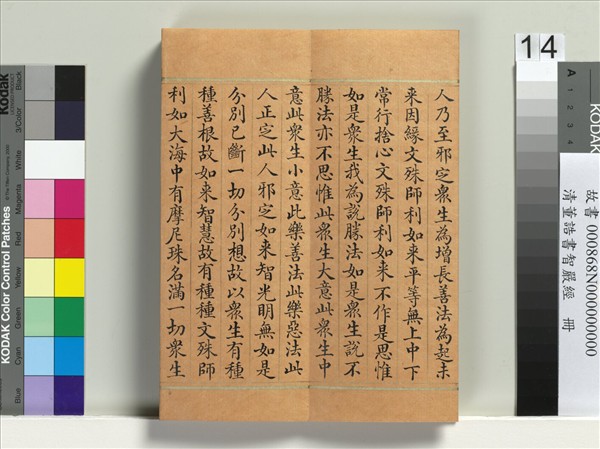 人乃至邪定衆生為增長善法為起未
来因緣文殊師利如来平等無上中下
常行捨心文殊師利如来不作是思惟
如是衆生我為說勝法如是衆生說不
勝法亦不思惟此衆生大意此衆生中
意此衆生小意此樂善法此樂惡法此
人正定此人邪定如来智光明無如是
分別已斷一切分別想故以衆生有種
種善根故如来智慧故有種種文殊師
利如大海中有摩尼珠名滿一切衆生
14
A 1 2 3 4
故書 000868N000000000
清董誥書智嚴經 冊
Kodak
KODAK Color Control Patches
© The Tiffen Company, 2000
Blue Cyan Green Yellow Red Magenta White 3/Color Black